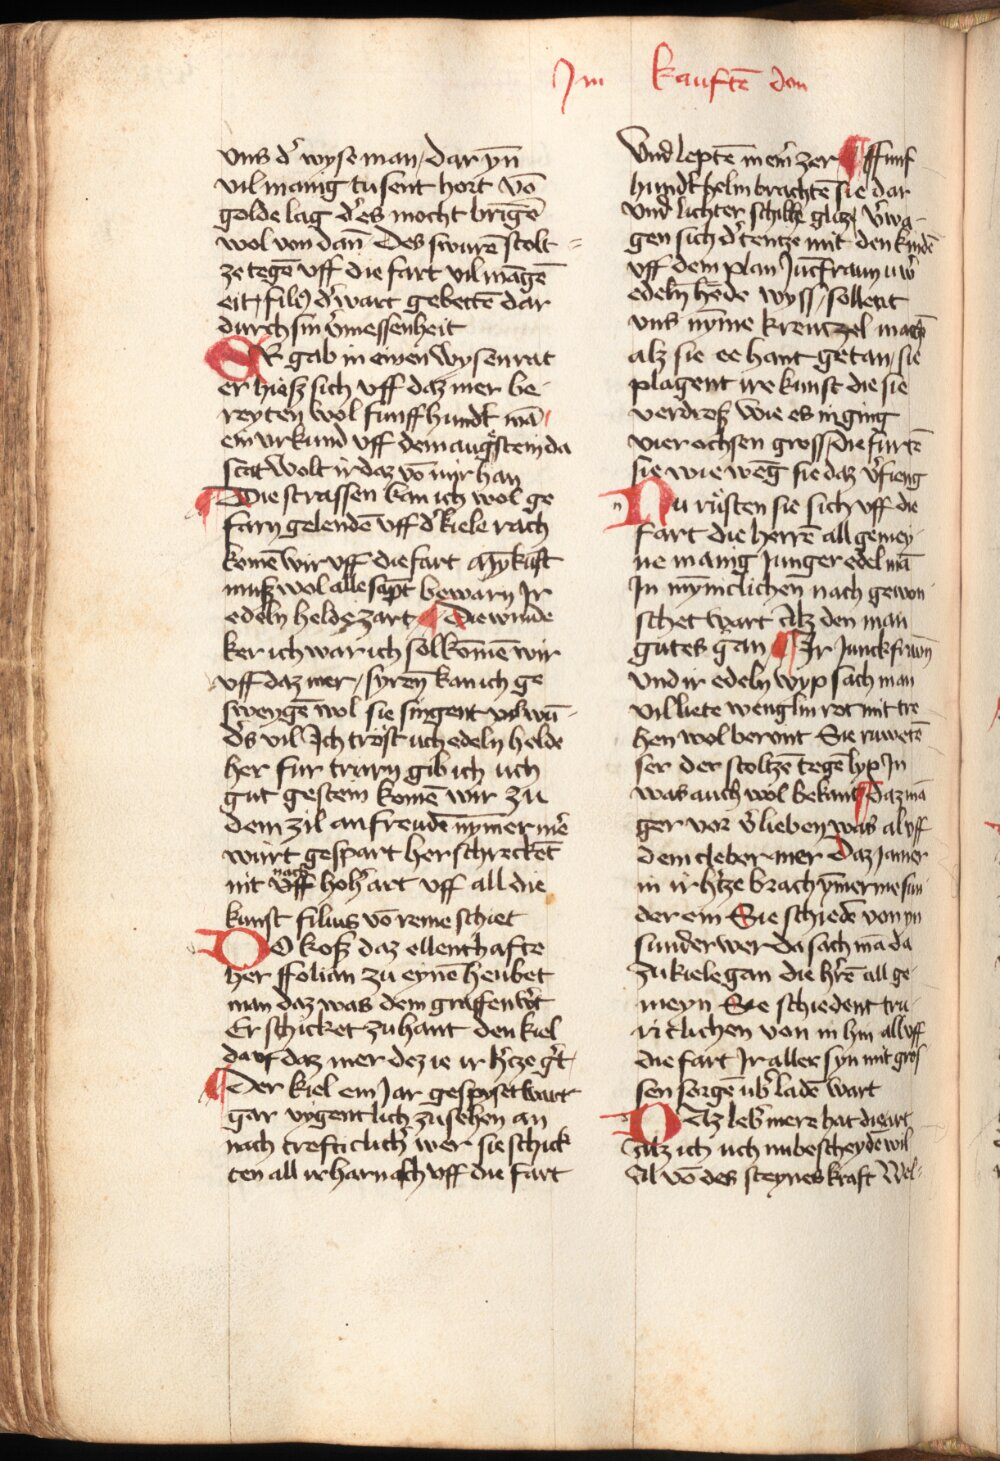 Im kauftē don
vnß d' wyse man / dar yn̄
vil manig tusent hort vō
golde lag d' es mocht brīgē
wol von dan̄ Des swurē stolt=
ze tegē vff die fart vil māgē
eit / filꝰ d' wart gebettē dar
durch sin v'messenheit
ER gab in einen wysen rat
er hiesz sich vff daz mer be-
reyten wol funff hund't mā
ein vrkund vff dem augstein da
stat wolt ir daz vō mir han
Die strassen kan ich wol ge
farn gelendē vff d' kiele rach
komē wir vff die fart My kūst
musz wol alle sāpt bewarn Ir
edeln helde zart Die wunde
ker ich war ich sol komē wir
vff daz mer / syren̄ kan ich ge
sweygē wol sie singent vils wū-
d's vil Ich tröst uch edeln helde
her fur trurn gib ich uch
gut gestein komē wir zu
dem zil an freudē nȳmer me
würt gespart her schreckēt
nit vff nach hoh' art vff all die
kunst filius vō reine schiet
DO kosz daz ellenthafte
her ffolian zu eynē heubet
man daz was dem graffen w't
Er schicket zu hant den kiel
da vf daz mer dez ie ir h'tze g't
Der kiel ein Jar gespyset wart
gar vygentlich zu sehen an
nach trefticlich' wer sie schick
ten all ir harnasch vff die fart
Vnd leptē in ein' zer ffunf
hund't helm brachtē sie dar
vnd lichter schilte glitz v'wa-
gen sich d' tentze mit den kindē
vff dem plan Juncfraun uw'
edeln hēde wyss / sollent
vns nȳme krentzel machē
alz sie ee hant getan / sie
plagent ire kunst die sie
verdrosz Wie es in ging
vier ochsen gross die furtē
sie wie weng sie daz v'fieng
Nu rüsten sie sich vff die
fart die herrē all gemey
ne manig Junger edel mā
In mynniclichen̄ nach gewon
schet wart Alz den man
gutes gan Ir Junckfrawn̄
vnd ir edeln wyp sach man
vil liete wenglin rot mit tre
hen wol bervnt Sie ruwetē
ser der stoltzē tegē lyp In
was auch wol bekant Daz mā
ger vor v'lieben was al vff
dem cleber mer Daz Jamer
in ir h'tze brach ȳmer me sun
der ein Sie schiedē von yn
sunder wer Da sach mā da
zu kiele gan die h'rē all ge-
meyn Sie schiedent tru-
riclichen von in hin all vff
die fart Ir aller syn mit gros
sen sorgē ub' ladē wart
DAz leb' mere hat die art
Alz ich uch nu bescheydē wil
Al vō des steynes kraft Wel-